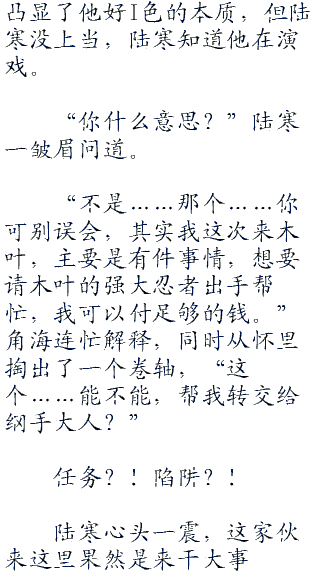 凸显了他好I色的本质，但陆
寒没上当，陆寒知道他在演
戏。
“你什么意思？”陆寒
一皱眉问道。
“不是……那个……你
可别误会，其实我这次来木
叶，主要是有件事情，想要
请木叶的强大忍者出手帮
忙，我可以付足够的钱。”
角海连忙解释，同时从怀里
掏出了一个卷轴，“这
个……能不能，帮我转交给
纲手大人？”
任务？！陷阱？！
陆寒心头一震，这家伙
来这里果然是来干大事